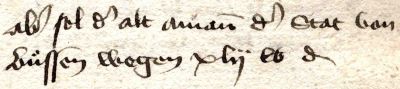 ab' sol d' alt amañ d' Stat von
bůssen wegen xlij lb d